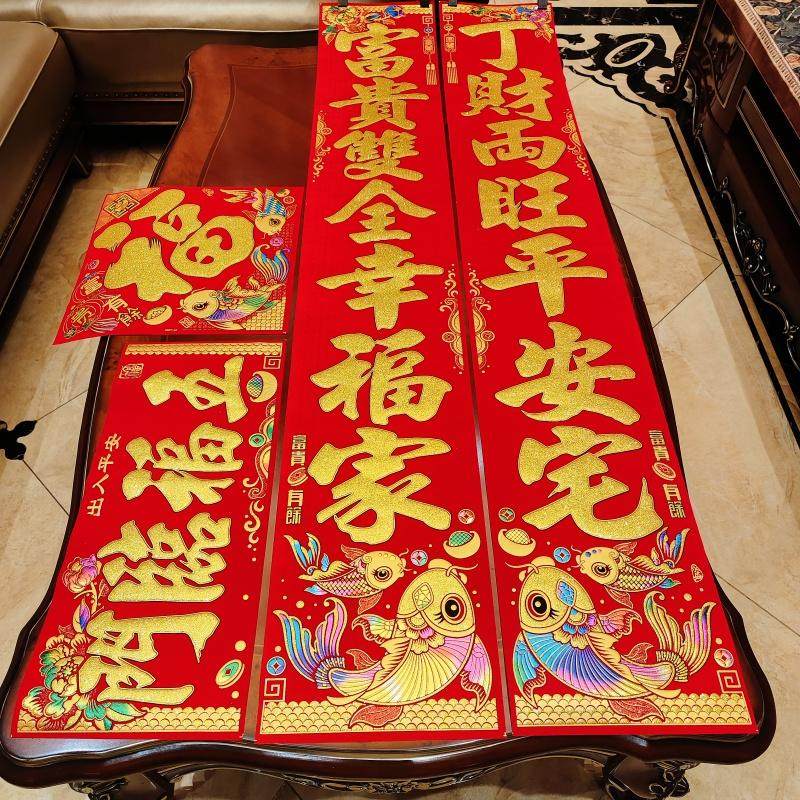 丁財両旺平安宅
富貴有餘
富貴雙全幸福家
富貴有餘
福
富貴有餘
五福臨門
出入平安